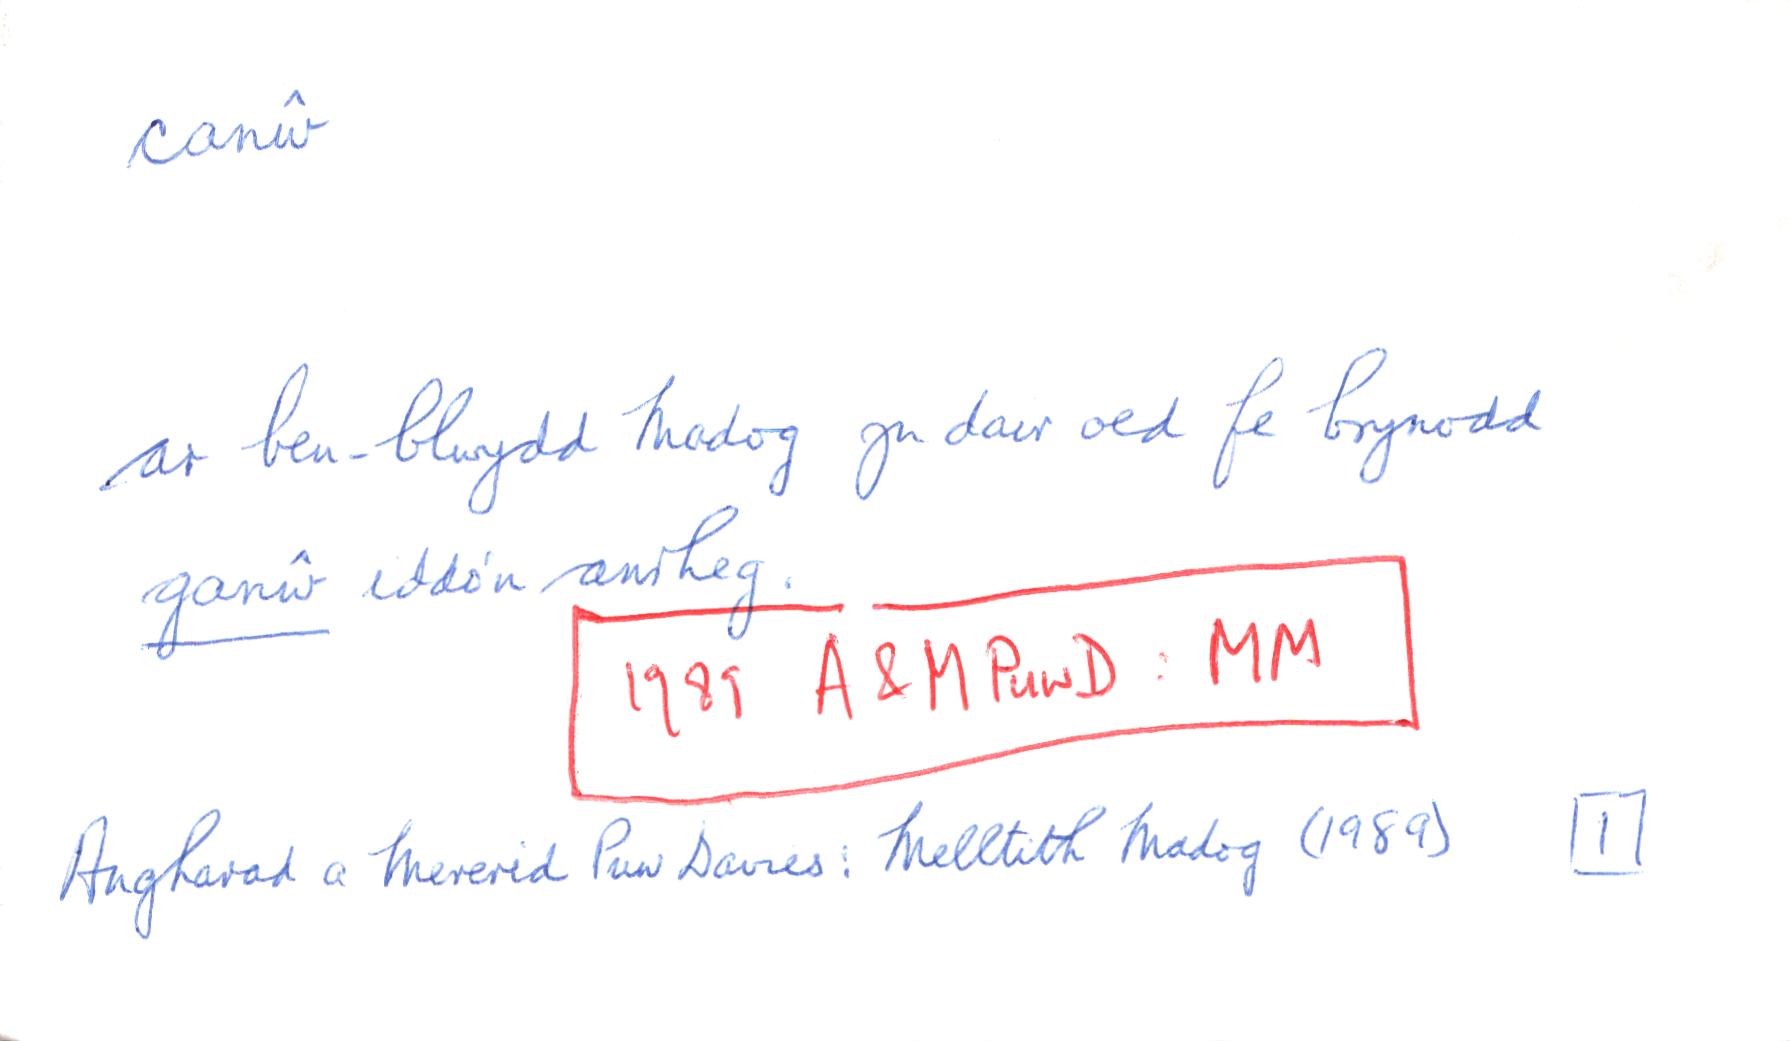 canŵ
ar ben-blwydd Madog yn dair oed fe brynodd
ganŵ iddo'n anrheg.
1989 A & M PuwD : MM
Angharad a Mererid Puw Davies : Melltith Madog (1989) 1